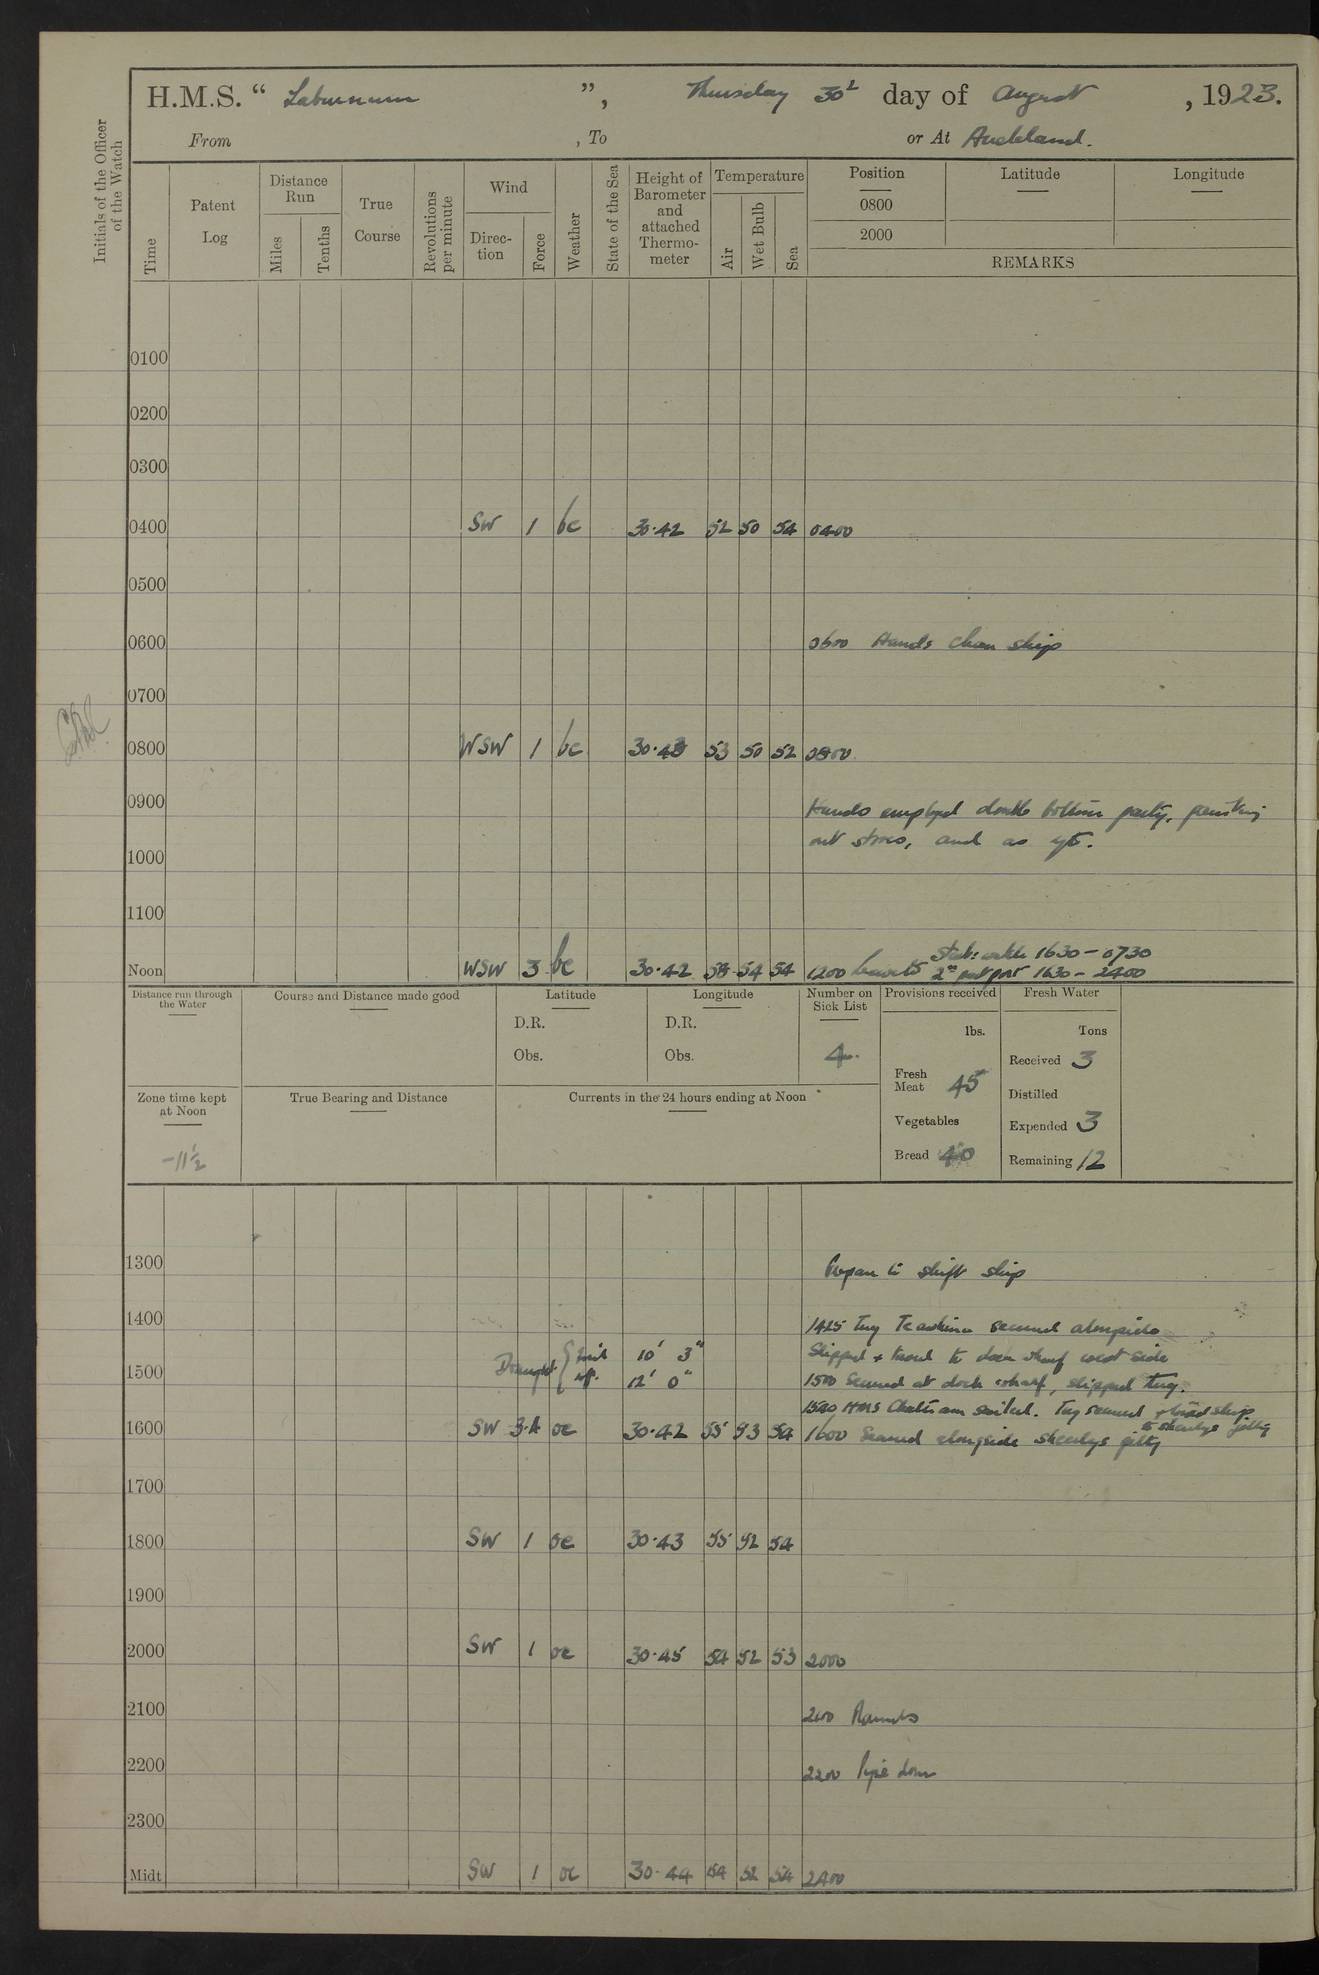 H.M.S. “ Laburnum ”, Thursday 30th day of August, 1923.
From , To or At Auckland.
Initials of the Officer of the Watch
Time
Patent Log
Distance Run
Miles
Tenths
True Course
Revolutions per minute
Wind
Direc-tion
Force
Weather
State of the Sea
Height of Barometer and attached Thermo-meter
Temperature
Air
Wet Bulb
Sea
Position
0800
2000
Latitude
Longitude
REMARKS
0100
0200
0300
0400 SW 1 bc 30.42 52 50 54 0400
0500
0600 0600 Hands clean ship
0700
0800 WSW 1 bc 30.43 53 50 52 0800
0900 Hands employed double bottom party, painting
out stores, and as
1000
1100
1630 - 0730
Noon WSW 3 bc 30.42 58 54 54 1200 1630 - 2400
Distance run through the Water
Course and Distance made good
Latitude
D.R.
Obs.
Longitude
D.R.
Obs.
Number on Sick List
4
Provisions received
lbs.
Fresh Meat 45
Vegetables
Bread 40
Fresh Water
Tons
Received 3
Distilled
Expended 3
Remaining 12
Zone time kept at Noon
-11½
True Bearing and Distance
Currents in the 24 hours ending at Noon
1300 Prepare to shift ship
1400 1425 Tug Te Awhina secured alongside
Draught 10' 3" Slipped + to dock wharf west side
1500 12' 0" 1500 Secured at dock wharf, slipped tug.
1540 HMS Chatham sailed. Tug secured + ship
to Sheerlegs jetty
1600 SW 3.4 oc 30.42 55 53 54 1600 Secured alongside sheerlegs jetty
1700
1800 SW 1 oc 30.43 55 52 54
1900
2000 SW 1 oc 30.45 54 52 53 2000
2100 2100 Rounds
2200 2200 Pipe down
2300
Midt SW 1 oc 30.44 54 52 54 2400